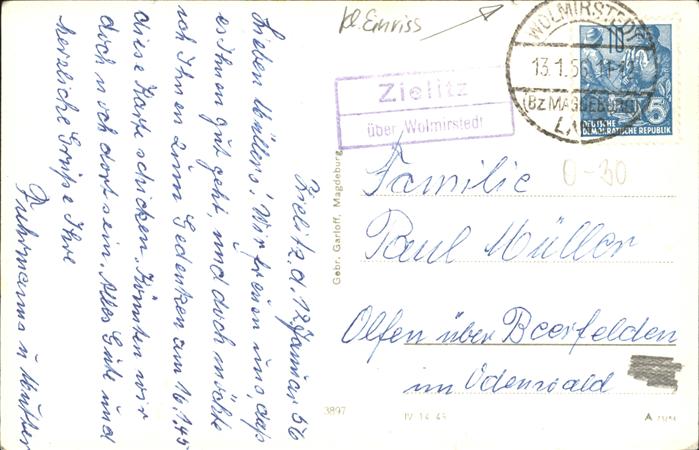 kl. Einriss
WOLMIRSTEDT
13.1.56.11-12
(Bz MAGDEBURG)
LAND
10
5
DEUTSCHE
DEMOKRATISCHE REPUBLIK
Zielitz
über Wolmirstedt
0-30
Familie
Paul Müller
Olfen über Beerfelden
im Odenwald
Gebr. Garloff, Magdeburg
3897
IV-14-45
A
Zielitz, d. 12. Januar 56
Lieben Müllers! Wir freuen uns, daß
es Ihnen gut geht, und doch möchte
ich Ihnen zum Gedenken am 16.1.45
diese Karte schicken. Könnten wir
doch noch dort sein. Alles Gute und
herzliche Grüße Ihre
Fuhrmanns u. Mutter